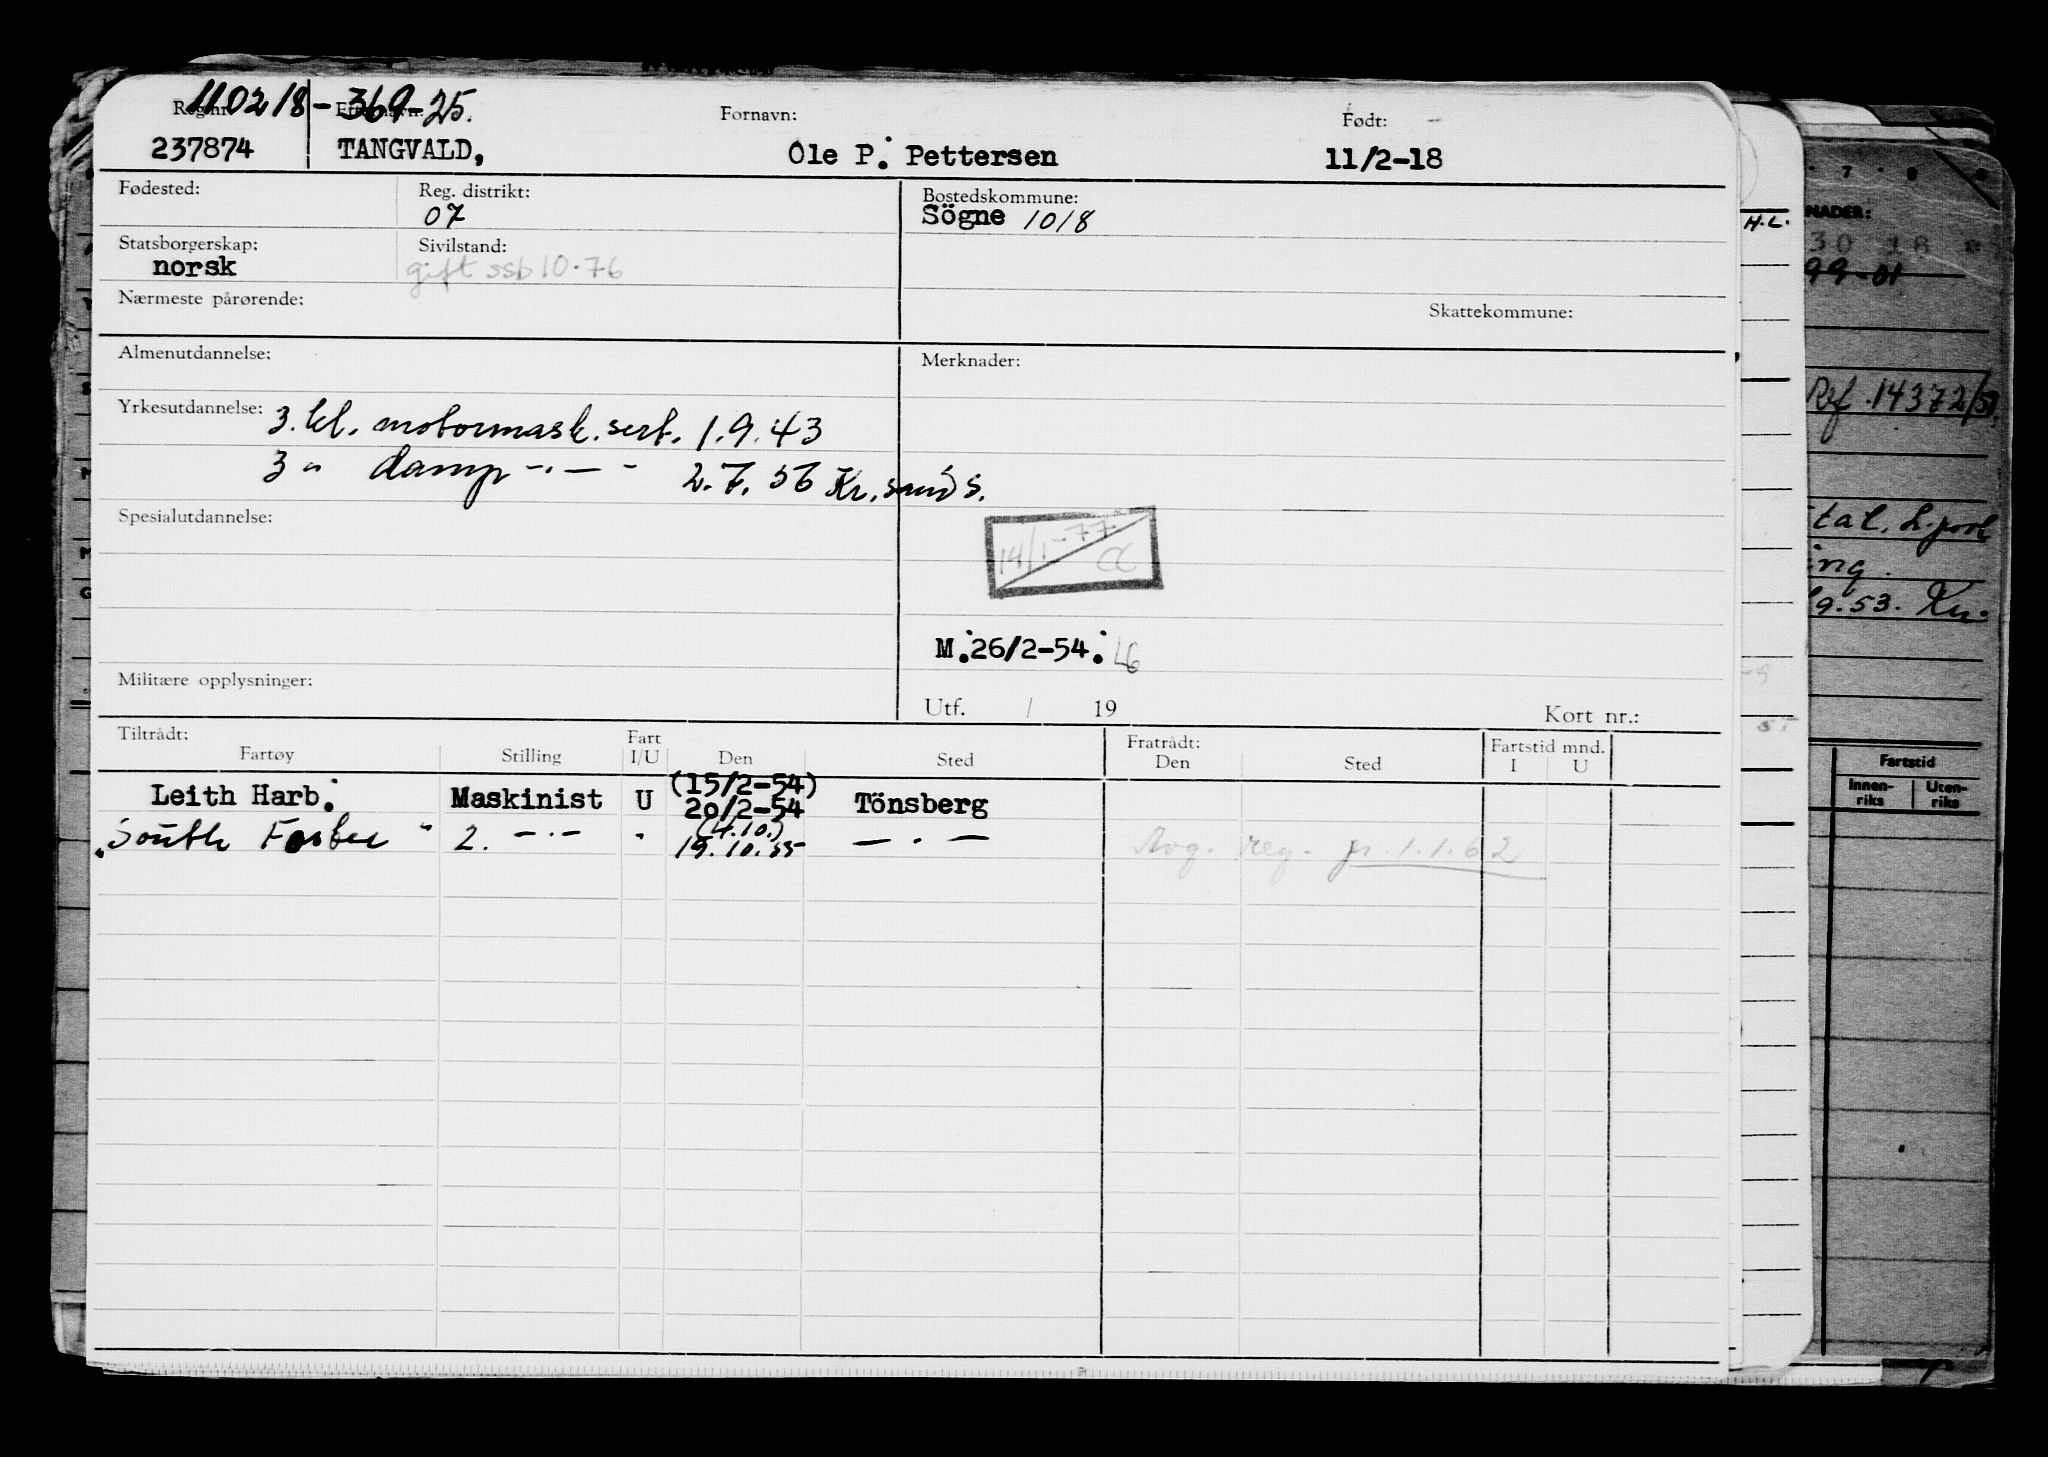 110218-369-25.
Reg.nr. Efternavn: Fornavn: Født:
237874 TANGVALD, Ole P. Pettersen 11/2-18
Fødested: Reg. distrikt: Bostedskommune:
07 Sögne 1018
Statsborgerskap: Sivilstand:
norsk gift ssb 10.76
Nærmeste pårørende: Skattekommune:
Almenutdannelse: Merknader:
Yrkesutdannelse: 3. kl. motormask.sert. 1.9.43
3 " damp -.- - 2.7.56 Kr.sand S.
Spesialutdannelse:
14/1-77
M.26/2-54.
Militære opplysninger:
Utf. / 19 Kort nr.:
Tiltrådt: Fart Fratrådt: Fartstid mnd.
Fartøy Stilling I/U Den Sted Den Sted I U
Leith Harb. Maskinist U (15/2-54) 20/2-54 Tönsberg
"South " 2. -.- " (4.10.) 19.10.55 - . -
Avg. reg. pr. 1.1.62
H.L.
7 8
NADER:
30 18
99-01
Ref. 14372/51
tal. L.pool
ing.
9.53. Kr.
Fartstid
Innen-riks Uten-riks